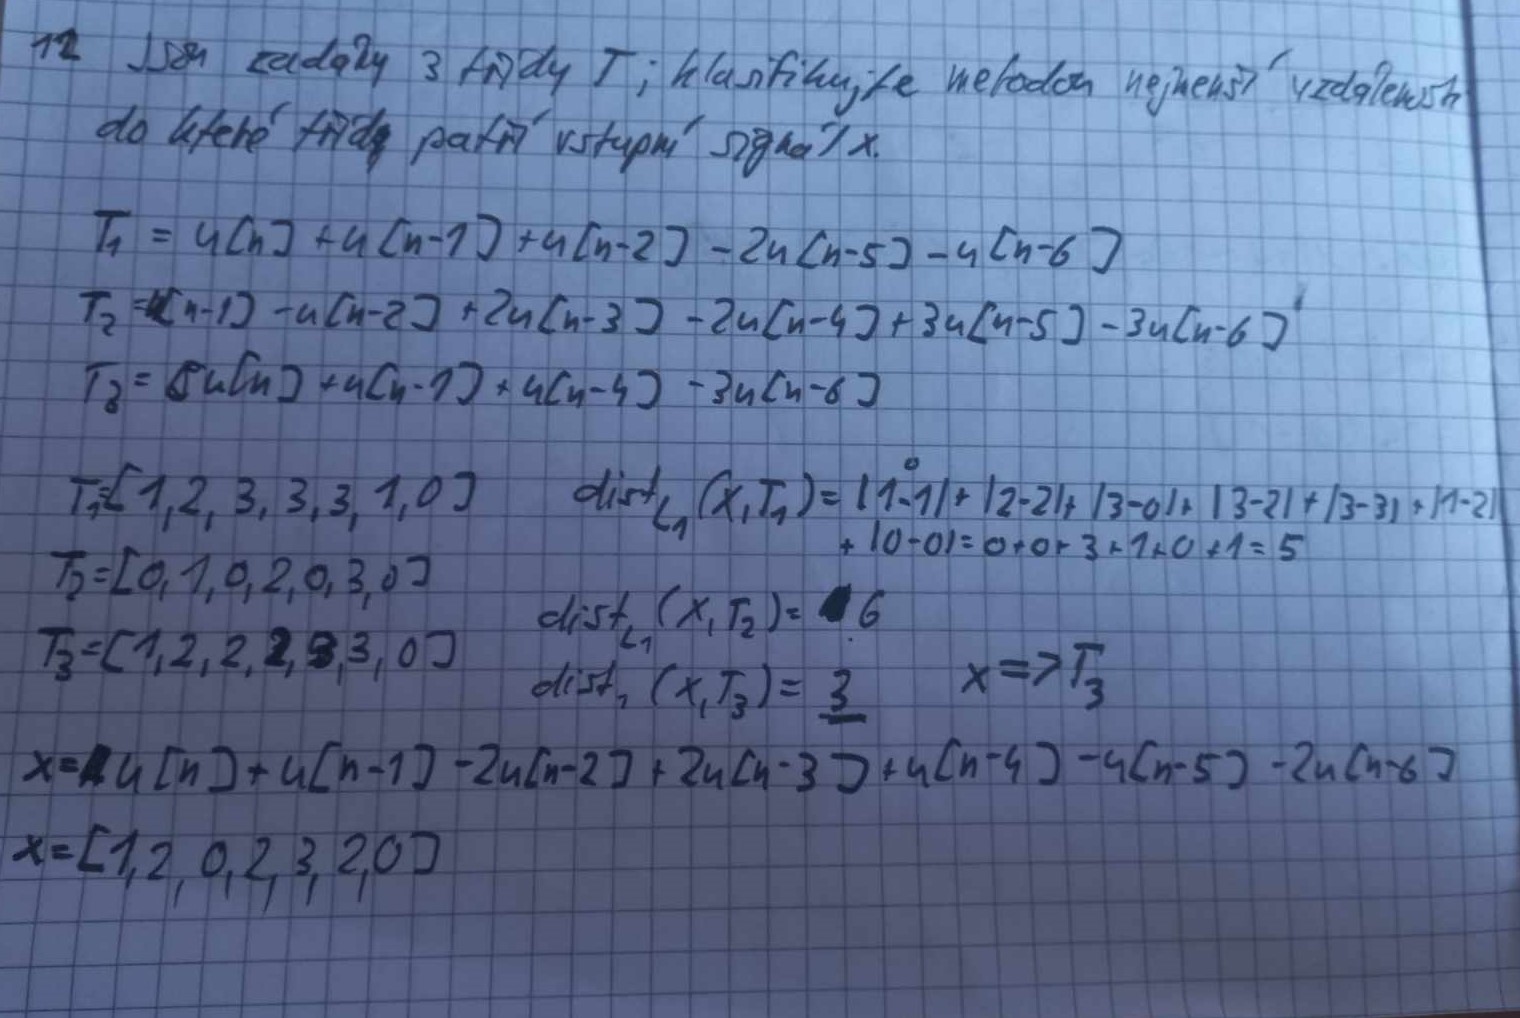 12 Jsou zadány 3 třídy T; klasifikujte metodou nejmenší vzdálenosti
do které třídy patří vstupní signál x.
T₁ = u[n] + u[n-1] + u[n-2] - 2u[n-5] - u[n-6]
T₂ = u[n-1] - u[n-2] + 2u[n-3] - 2u[n-4] + 3u[n-5] - 3u[n-6]
T₃ = u[n] + u[n-1] + u[n-4] - 3u[n-6]
T₁=[1,2,3,3,3,1,0] dist_L₁(x,T₁) = |1-1| + |2-2| + |3-0| + |3-2| + |3-3| + |1-2|
+ |0-0| = 0+0+3+1+0+1 = 5
T₂=[0,1,0,2,0,3,0]
dist_L₁(x,T₂) = 6
T₃=[1,2,2,2,3,3,0]
dist₁(x,T₃) = 3 x => T₃
x = u[n] + u[n-1] - 2u[n-2] + 2u[n-3] + u[n-4] - u[n-5] - 2u[n-6]
x = [1,2,0,2,3,2,0]